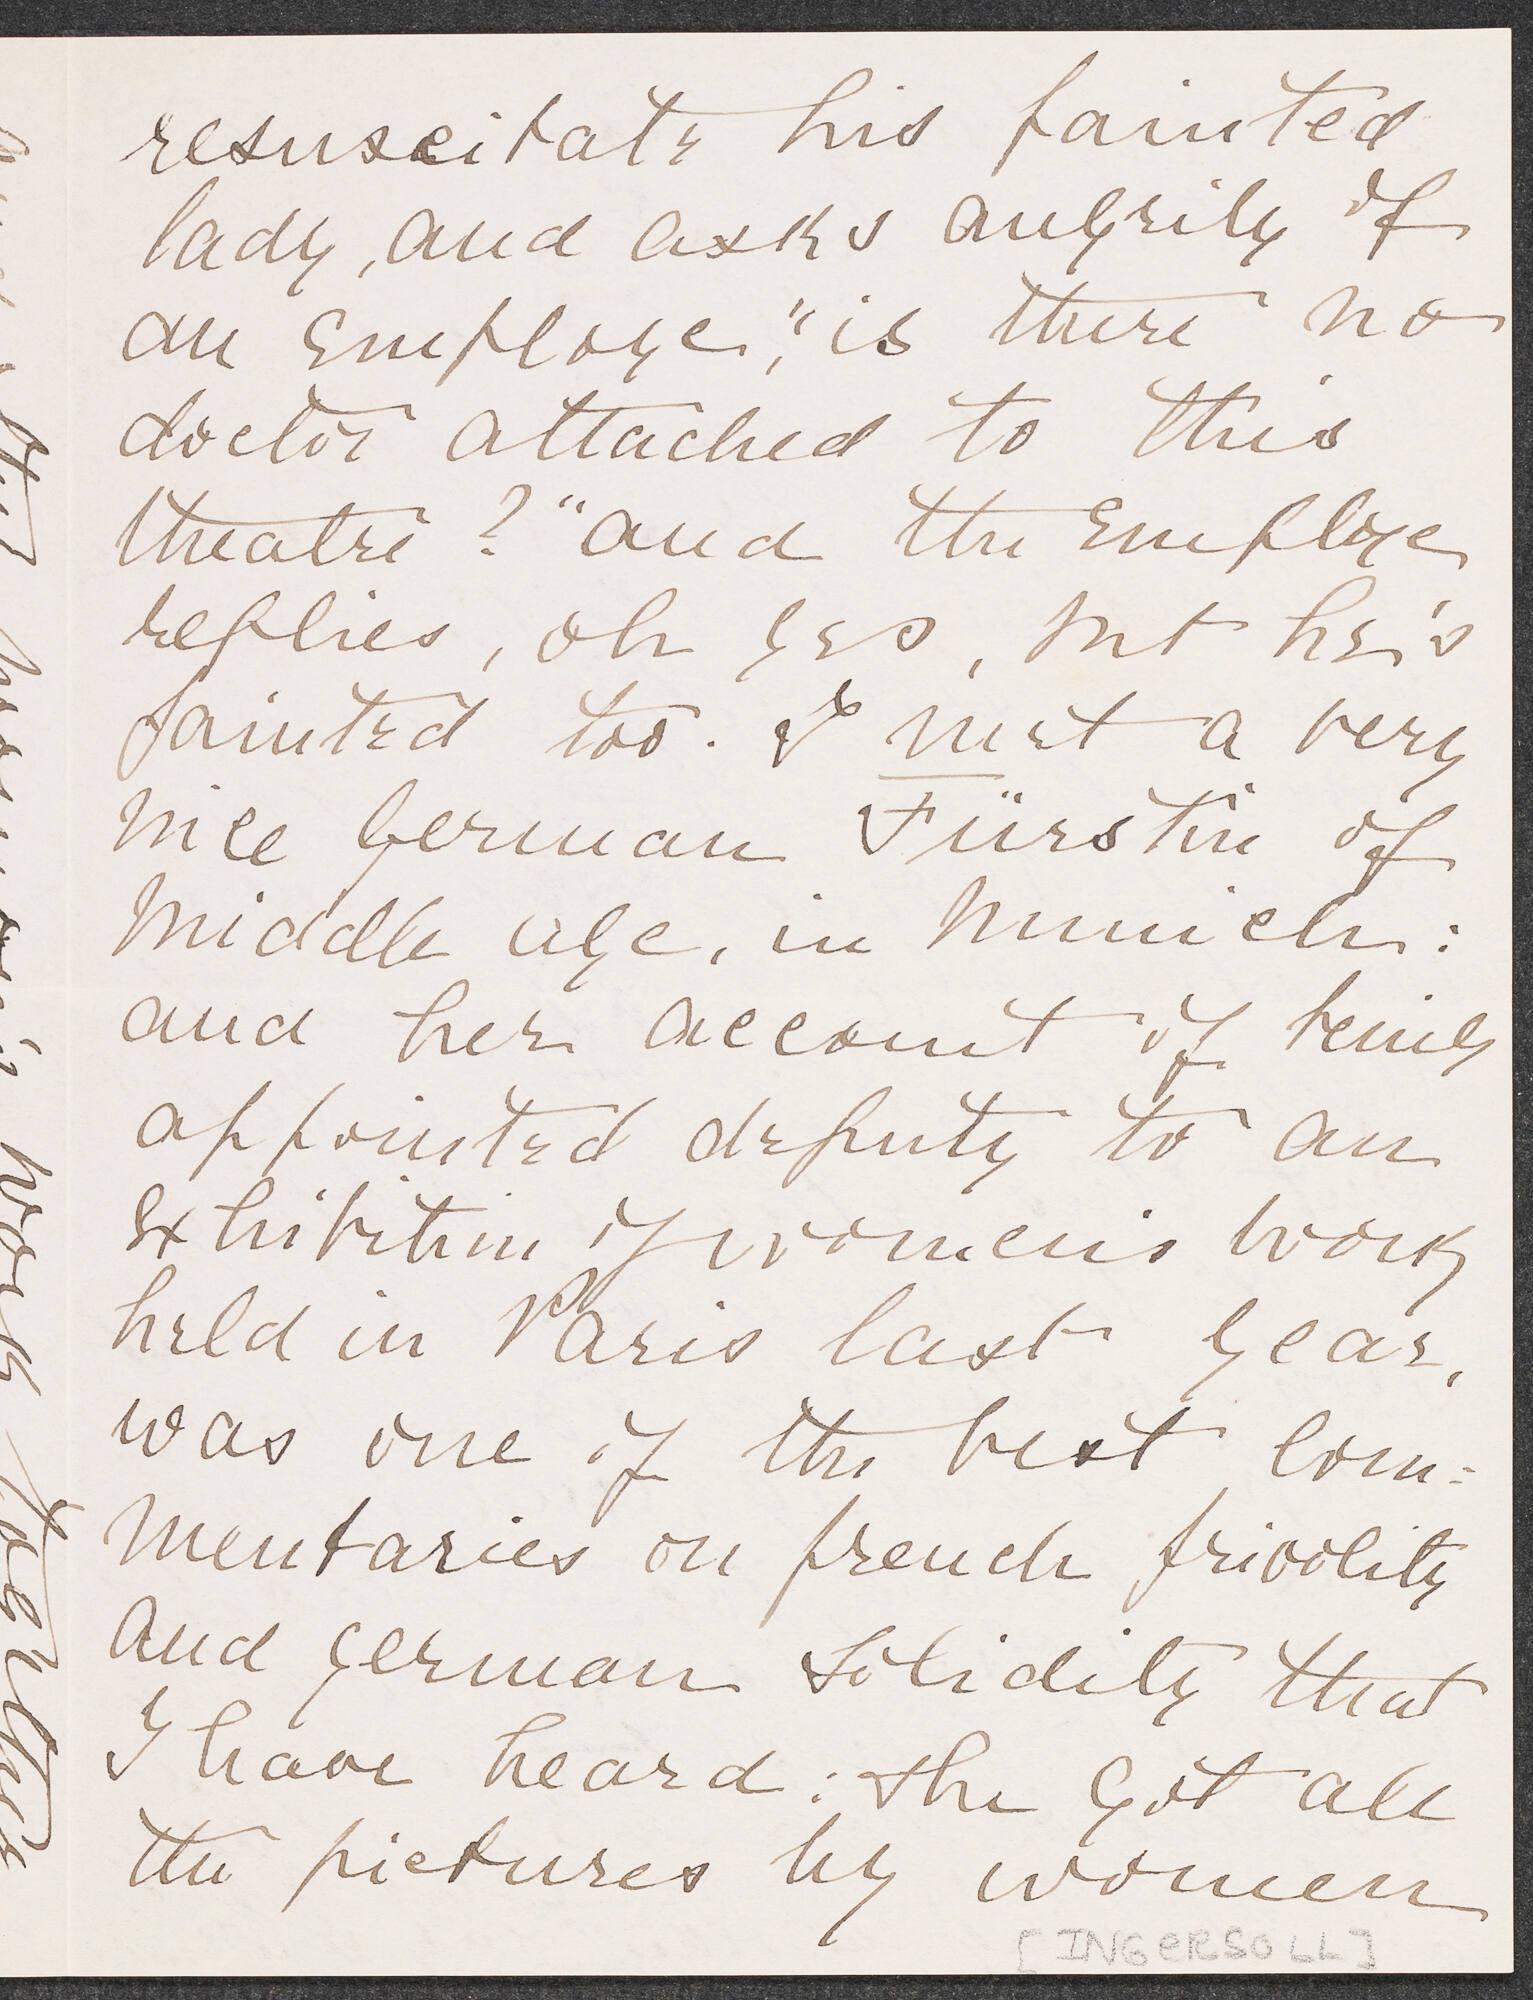 resuscitate his fainted
lady, and asks angrily of
an employe, "is there no
doctor attached to this
theatre?" and the employe
replies, oh yes, but he's
fainted too. I met a very
nice German Fürstin of
middle age, in Munich:
and her account of being
appointed deputy to an
exhibition of women's work
held in Paris last year,
was one of the best com=
mentaries on french frivolity
and german solidity that
I have heard: she got all
the pictures by women
[INGERSOLL]